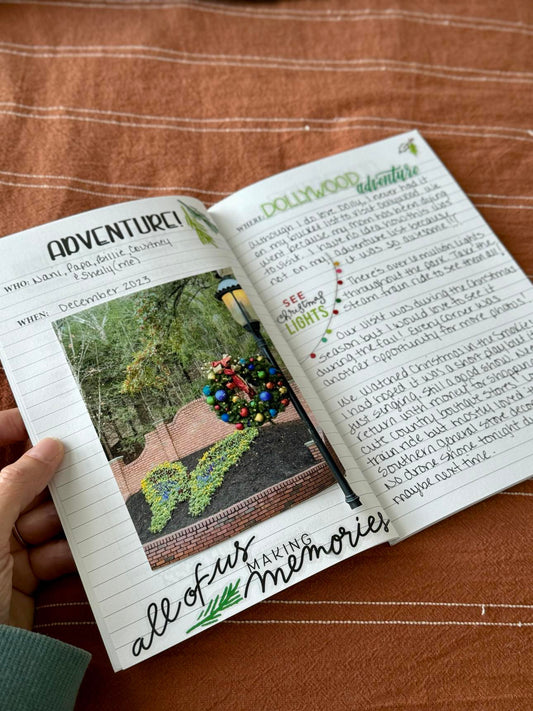 ADVENTURE!
WHO: Nani, Papa, Billie, Courtney
& Shelly (me)
WHEN: December 2023
all of us
MAKING
memories
WHERE: DOLLYWOOD adventure
Although I do love Dolly, I never had it
on my bucket list to visit Dollywood. We
went because my mom has been dying
to visit. I have no idea how this was
not on my adventure list because
it was so awesome!!!
SEE
christmas
LIGHTS
There's over 6 million lights
throughout the park. Take the
steam train ride to see them all!
Our visit was during the Christmas
season but I would love to see it
during the fall! Every corner was
another opportunity for more photos!
We watched Christmas in the Smokies
I had hoped it was a short play but it
just singing. Still a good show! We
return with money for shopping
cute country boutique stores! Love
train ride but mostly loved
Southern general store deco
No drone show tonight
maybe next time.